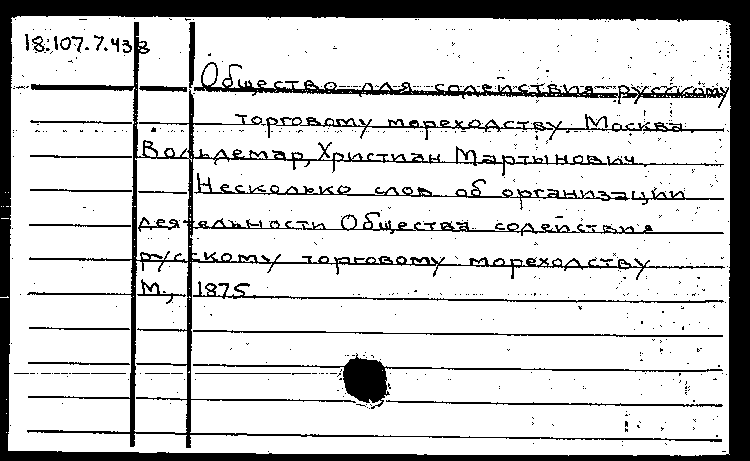 18:107.7.433
Общество для содействия русскому
торговому мореходству. Москва.
Вольдемар, Христиан Мартынович.
Несколько слов об организации
деятельности Общества содействия
русскому торговому мореходству
М., 1875.